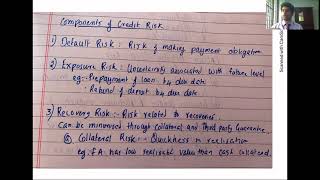 Components of Credit Risk
1) Default Risk : Risk of making payment obligation
2) Exposure Risk : Uncertainty associated with future level
eg:- Prepayment of loan by due date
- Refund of deposit by due date
3) Recovery Risk :- Risk related to recoveries
Can be minimised through Collateral and Third party Guarantee
Collateral Risk - Quickness in realisation
eg. FA has low realisable value than cash collateral